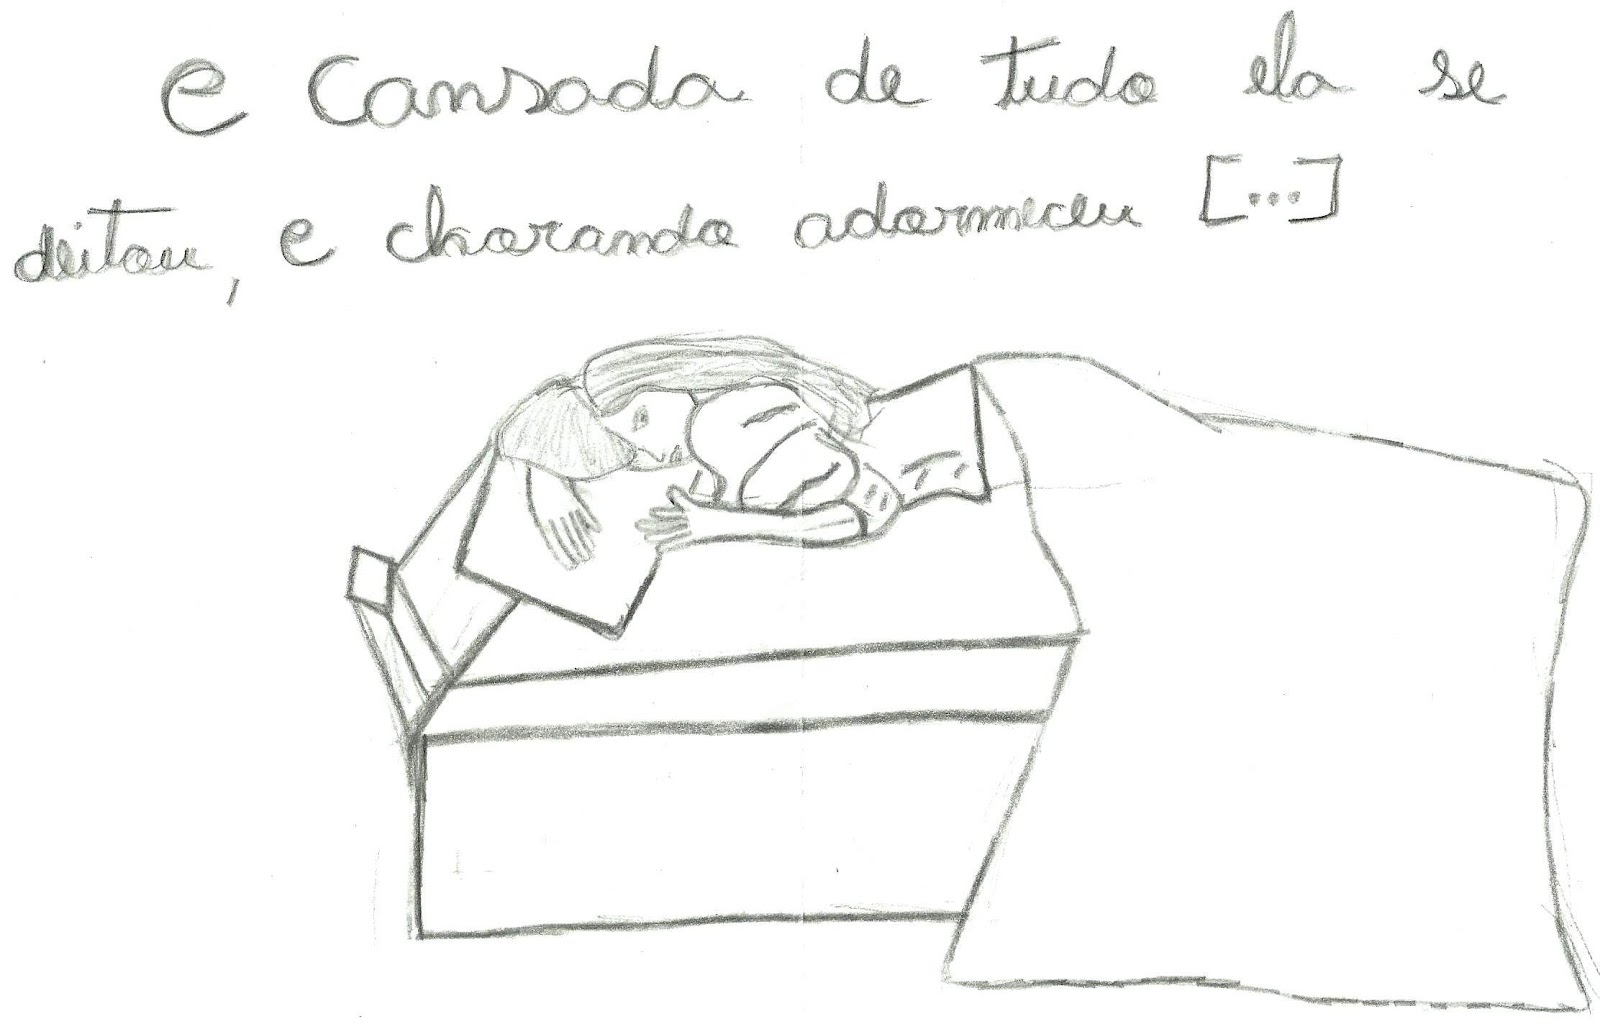 e cansada de tudo ela se
deitou, e chorando adormeceu [...]